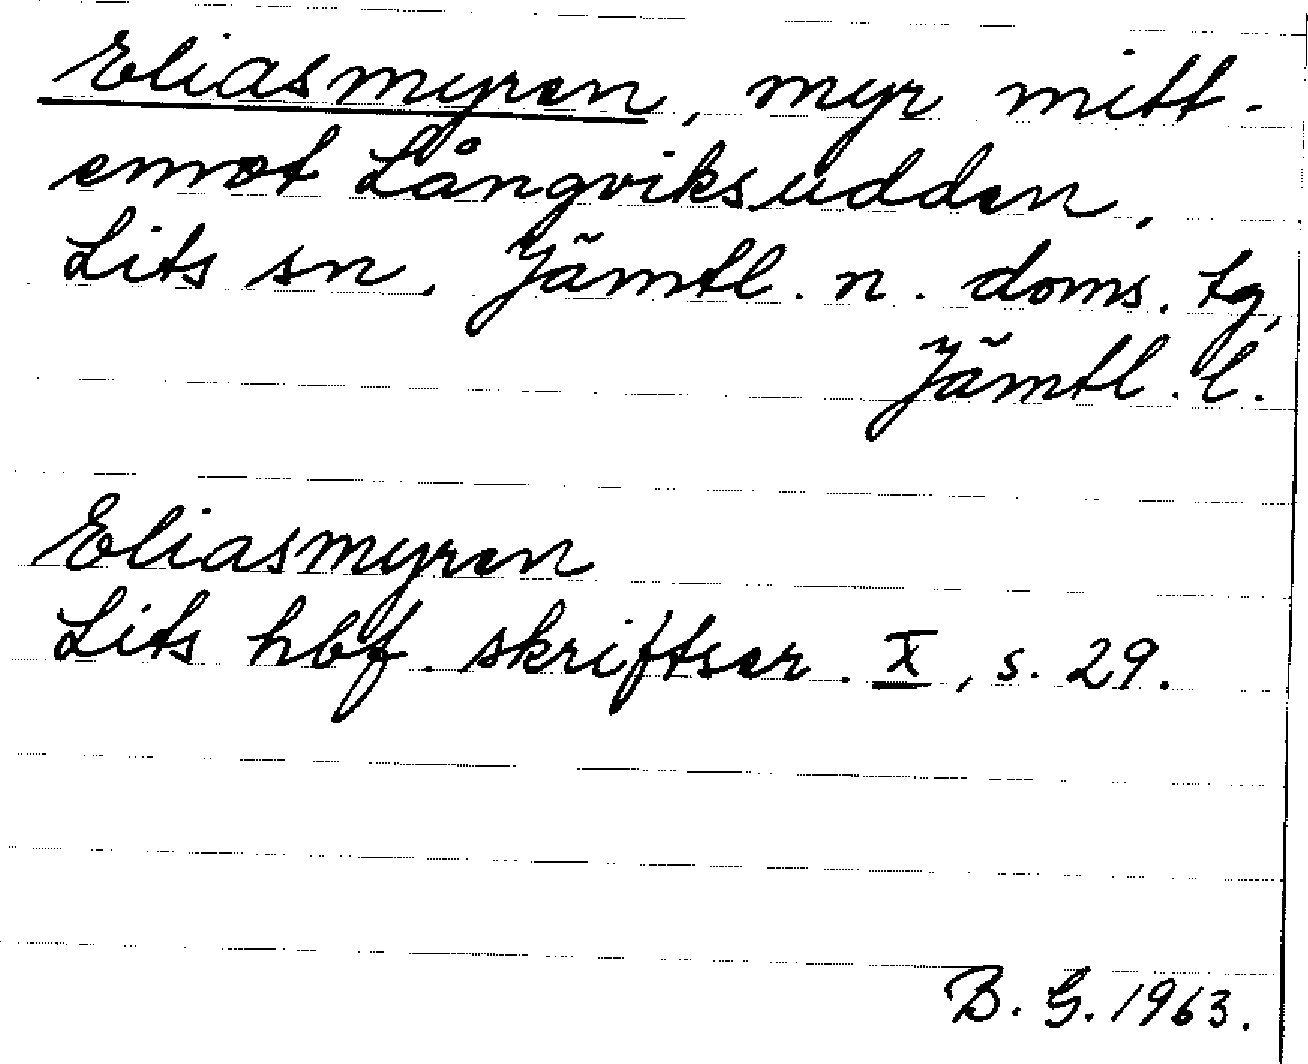 Eliasmyren, myr mitt-
emot Långviksudden,
Lits sn, Jämtl. n. doms. tg,
Jämtl. l.
Eliasmyren
Lits hbf. skriftser. X, s. 29.
B. G. 1963.